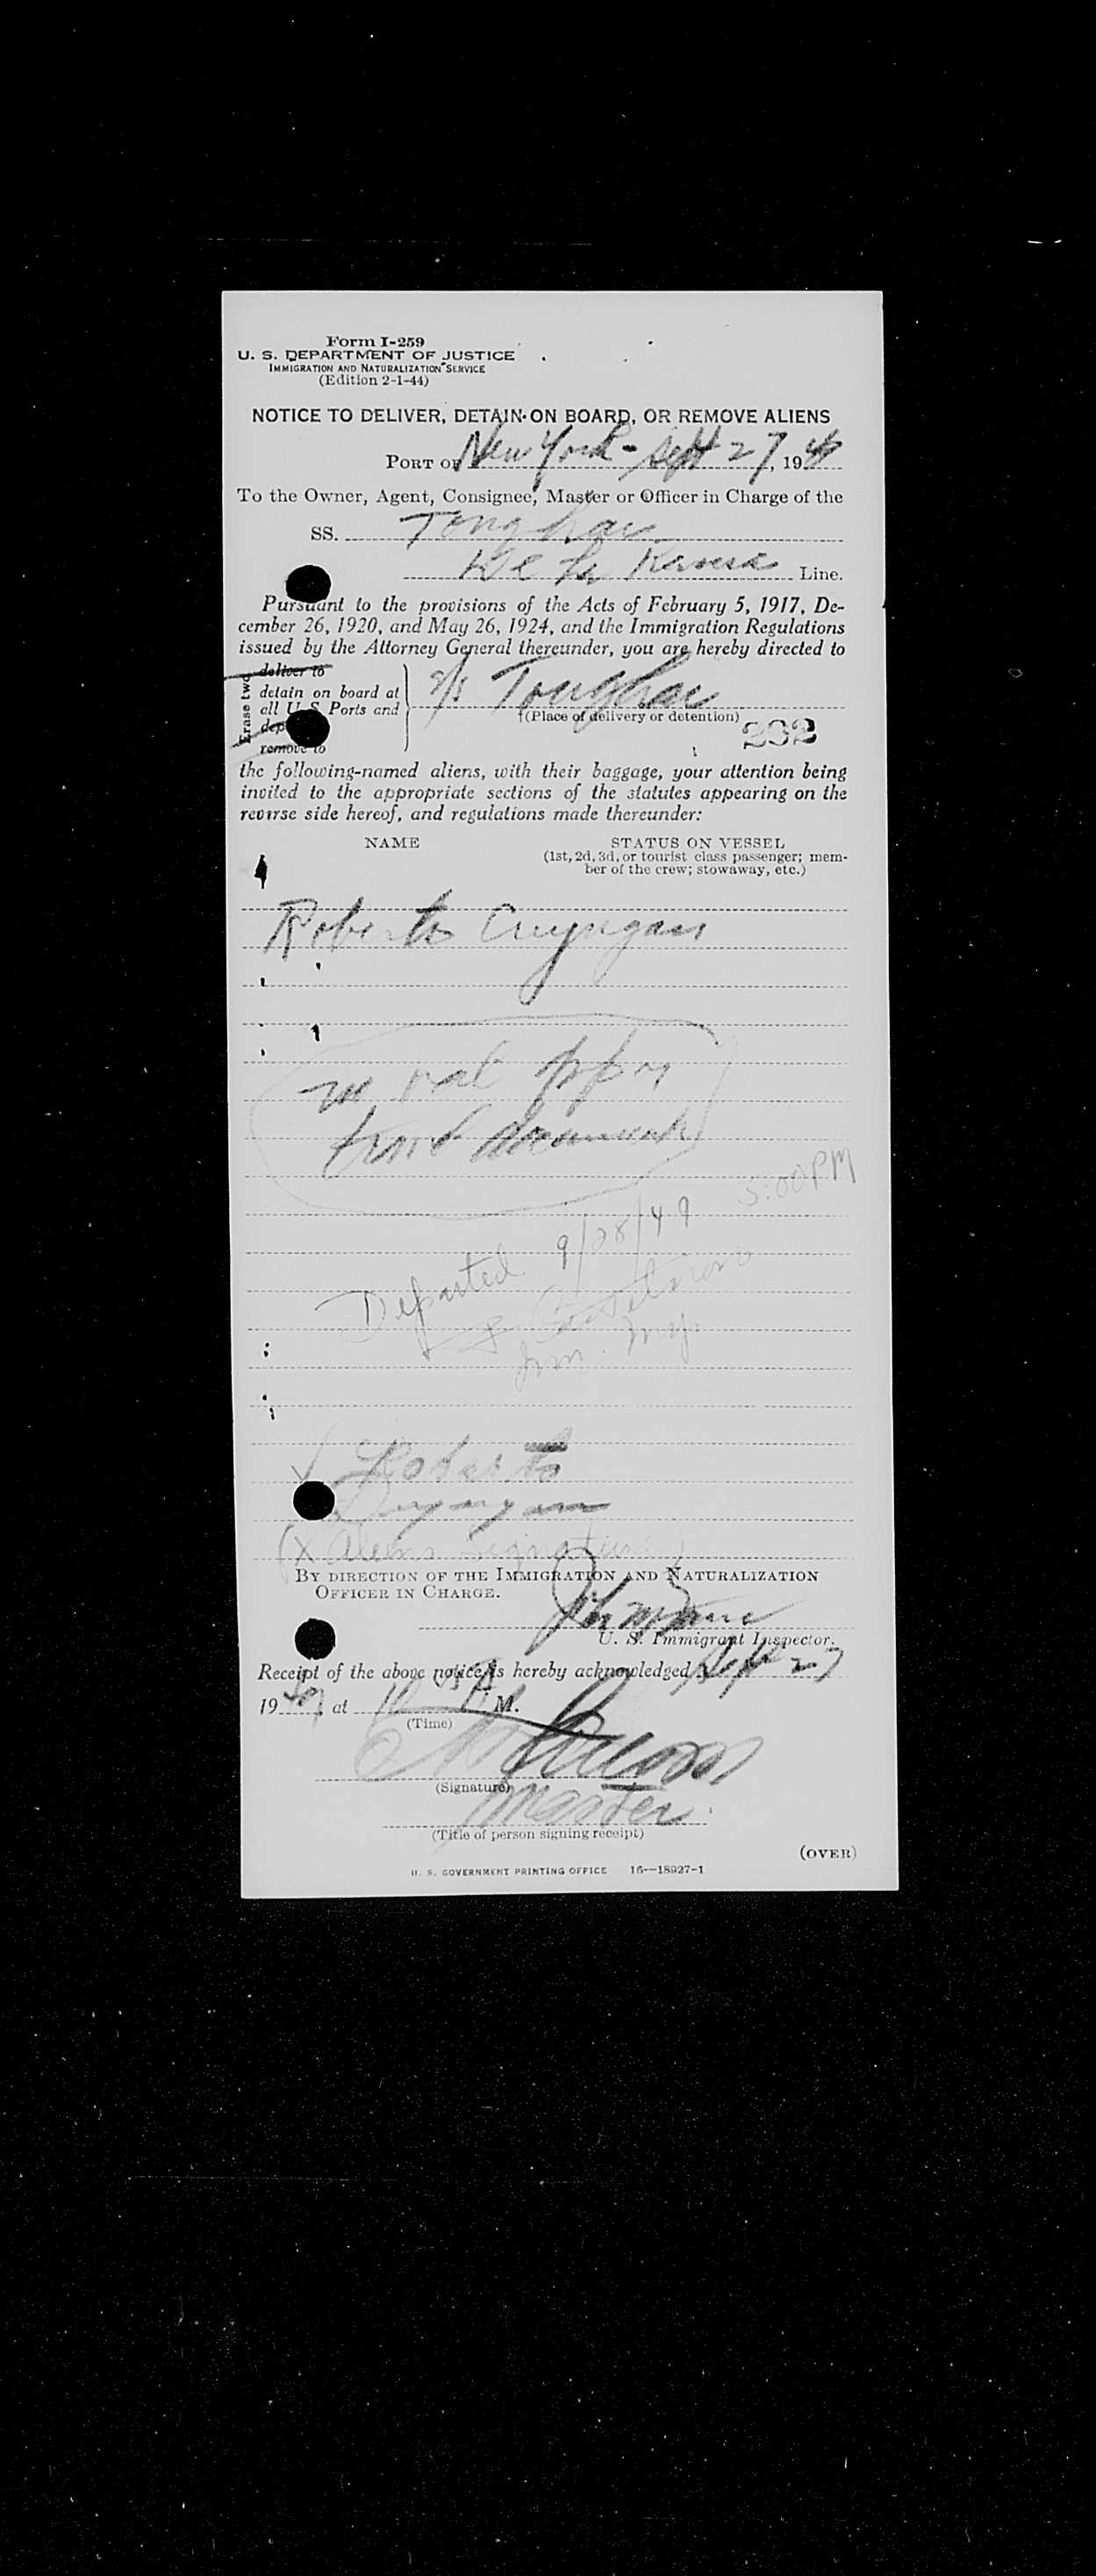 Form I-259
U. S. DEPARTMENT OF JUSTICE
IMMIGRATION AND NATURALIZATION SERVICE
(Edition 2-1-44)
NOTICE TO DELIVER, DETAIN ON BOARD, OR REMOVE ALIENS
PORT OF New York - Sept 27, 19
To the Owner, Agent, Consignee, Master or Officer in Charge of the
SS. Tonghai
De La Line.
Pursuant to the provisions of the Acts of February 5, 1917, De-
cember 26, 1920, and May 26, 1924, and the Immigration Regulations
issued by the Attorney General thereunder, you are hereby directed to
Erase two
deliver to
detain on board at
all U S Ports and
dep
remove to
s/s Tonghai
(Place of delivery or detention)
232
the following-named aliens, with their baggage, your attention being
invited to the appropriate sections of the statutes appearing on the
reverse side hereof, and regulations made thereunder:
NAME
STATUS ON VESSEL
(1st, 2d, 3d, or tourist class passenger; mem-
ber of the crew; stowaway, etc.)
Roberto
no val ppr
documents
5:00 PM
Departed 9/28/49
Roberto
(X Aliens Signature)
BY DIRECTION OF THE IMMIGRATION AND NATURALIZATION
OFFICER IN CHARGE.
John
U. S. Immigrant Inspector.
Receipt of the above notice is hereby acknowledged Sept 27
1949, at M.
(Time)
(Signature)
Master
(Title of person signing receipt)
(OVER)
U. S. GOVERNMENT PRINTING OFFICE 16—18927-1